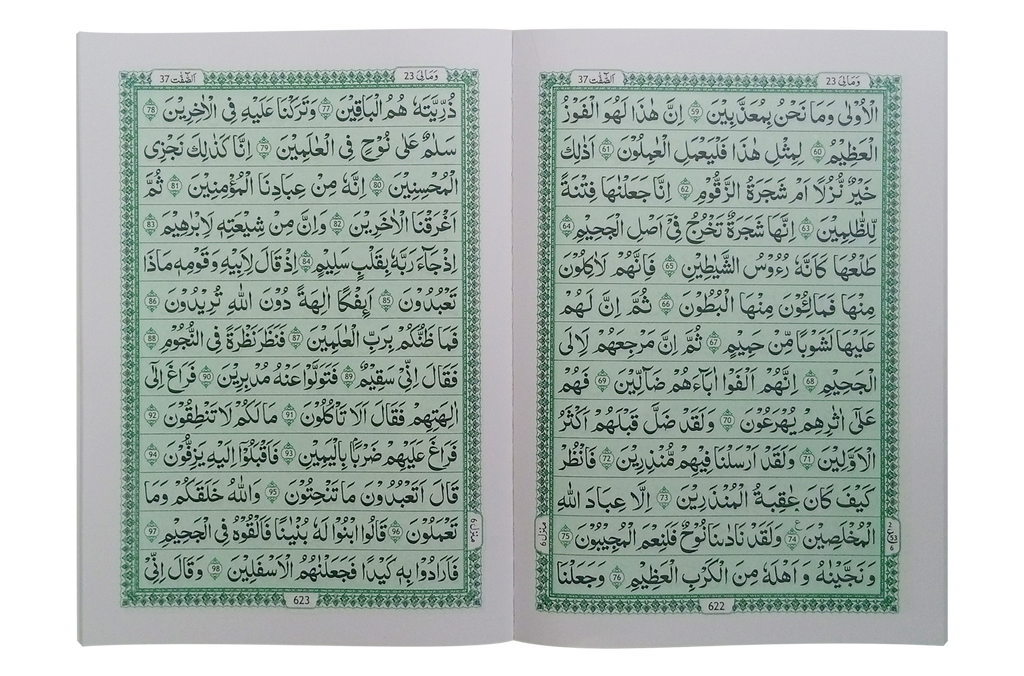 وَمَالِیَ 23
اَلصّٰٓفّٰت 37
الْاُوْلٰى وَمَا نَحْنُ بِمُعَذَّبِيْنَ 59 اِنَّ هٰذَا لَهُوَ الْفَوْزُ
الْعَظِيْمُ 60 لِمِثْلِ هٰذَا فَلْيَعْمَلِ الْعٰمِلُوْنَ 61 اَذٰلِكَ
خَيْرٌ نُّزُلًا اَمْ شَجَرَةُ الزَّقُّوْمِ 62 اِنَّا جَعَلْنٰهَا فِتْنَةً
لِّلظّٰلِمِيْنَ 63 اِنَّهَا شَجَرَةٌ تَخْرُجُ فِيْٓ اَصْلِ الْجَحِيْمِ 64
طَلْعُهَا كَاَنَّهٗ رُءُوْسُ الشَّيٰطِيْنِ 65 فَاِنَّهُمْ لَاٰكِلُوْنَ
مِنْهَا فَمَالِـُٔوْنَ مِنْهَا الْبُطُوْنَ 66 ثُمَّ اِنَّ لَهُمْ
عَلَيْهَا لَشَوْبًا مِّنْ حَمِيْمٍ 67 ثُمَّ اِنَّ مَرْجِعَهُمْ لَاِ۟الَى
الْجَحِيْمِ 68 اِنَّهُمْ اَلْفَوْا اٰبَآءَهُمْ ضَآلِّيْنَ 69 فَهُمْ
عَلٰٓى اٰثٰرِهِمْ يُهْرَعُوْنَ 70 وَلَقَدْ ضَلَّ قَبْلَهُمْ اَكْثَرُ
الْاَوَّلِيْنَ 71 وَلَقَدْ اَرْسَلْنَا فِيْهِمْ مُّنْذِرِيْنَ 72 فَانْظُرْ
كَيْفَ كَانَ عَاقِبَةُ الْمُنْذَرِيْنَ 73 اِلَّا عِبَادَ اللّٰهِ
الْمُخْلَصِيْنَ 74 وَلَقَدْ نَادٰىنَا نُوْحٌ فَلَنِعْمَ الْمُجِيْبُوْنَ 75
وَنَجَّيْنٰهُ وَاَهْلَهٗ مِنَ الْكَرْبِ الْعَظِيْمِ 76 وَجَعَلْنَا
منزل 6
622
وَمَالِیَ 23
اَلصّٰٓفّٰت 37
ذُرِّيَّتَهٗ هُمُ الْبَاقِيْنَ 77 وَتَرَكْنَا عَلَيْهِ فِى الْاٰخِرِيْنَ 78
سَلٰمٌ عَلٰى نُوْحٍ فِى الْعٰلَمِيْنَ 79 اِنَّا كَذٰلِكَ نَجْزِى
الْمُحْسِنِيْنَ 80 اِنَّهٗ مِنْ عِبَادِنَا الْمُؤْمِنِيْنَ 81 ثُمَّ
اَغْرَقْنَا الْاٰخَرِيْنَ 82 وَاِنَّ مِنْ شِيْعَتِهٖ لَاِبْرٰهِيْمَ 83
اِذْ جَآءَ رَبَّهٗ بِقَلْبٍ سَلِيْمٍ 84 اِذْ قَالَ لِاَبِيْهِ وَقَوْمِهٖ مَاذَا
تَعْبُدُوْنَ 85 اَئِفْكًا اٰلِهَةً دُوْنَ اللّٰهِ تُرِيْدُوْنَ 86
فَمَا ظَنُّكُمْ بِرَبِّ الْعٰلَمِيْنَ 87 فَنَظَرَ نَظْرَةً فِى النُّجُوْمِ 88
فَقَالَ اِنِّيْ سَقِيْمٌ 89 فَتَوَلَّوْا عَنْهُ مُدْبِرِيْنَ 90 فَرَاغَ اِلٰٓى
اٰلِهَتِهِمْ فَقَالَ اَلَا تَاْكُلُوْنَ 91 مَا لَكُمْ لَا تَنْطِقُوْنَ 92
فَرَاغَ عَلَيْهِمْ ضَرْبًا بِالْيَمِيْنِ 93 فَاَقْبَلُوْٓا اِلَيْهِ يَزِفُّوْنَ 94
قَالَ اَتَعْبُدُوْنَ مَا تَنْحِتُوْنَ 95 وَاللّٰهُ خَلَقَكُمْ وَمَا
تَعْمَلُوْنَ 96 قَالُوا ابْنُوْا لَهٗ بُنْيَانًا فَاَلْقُوْهُ فِى الْجَحِيْمِ 97
فَاَرَادُوْا بِهٖ كَيْدًا فَجَعَلْنٰهُمُ الْاَسْفَلِيْنَ 98 وَقَالَ اِنِّيْ
منزل 6
623